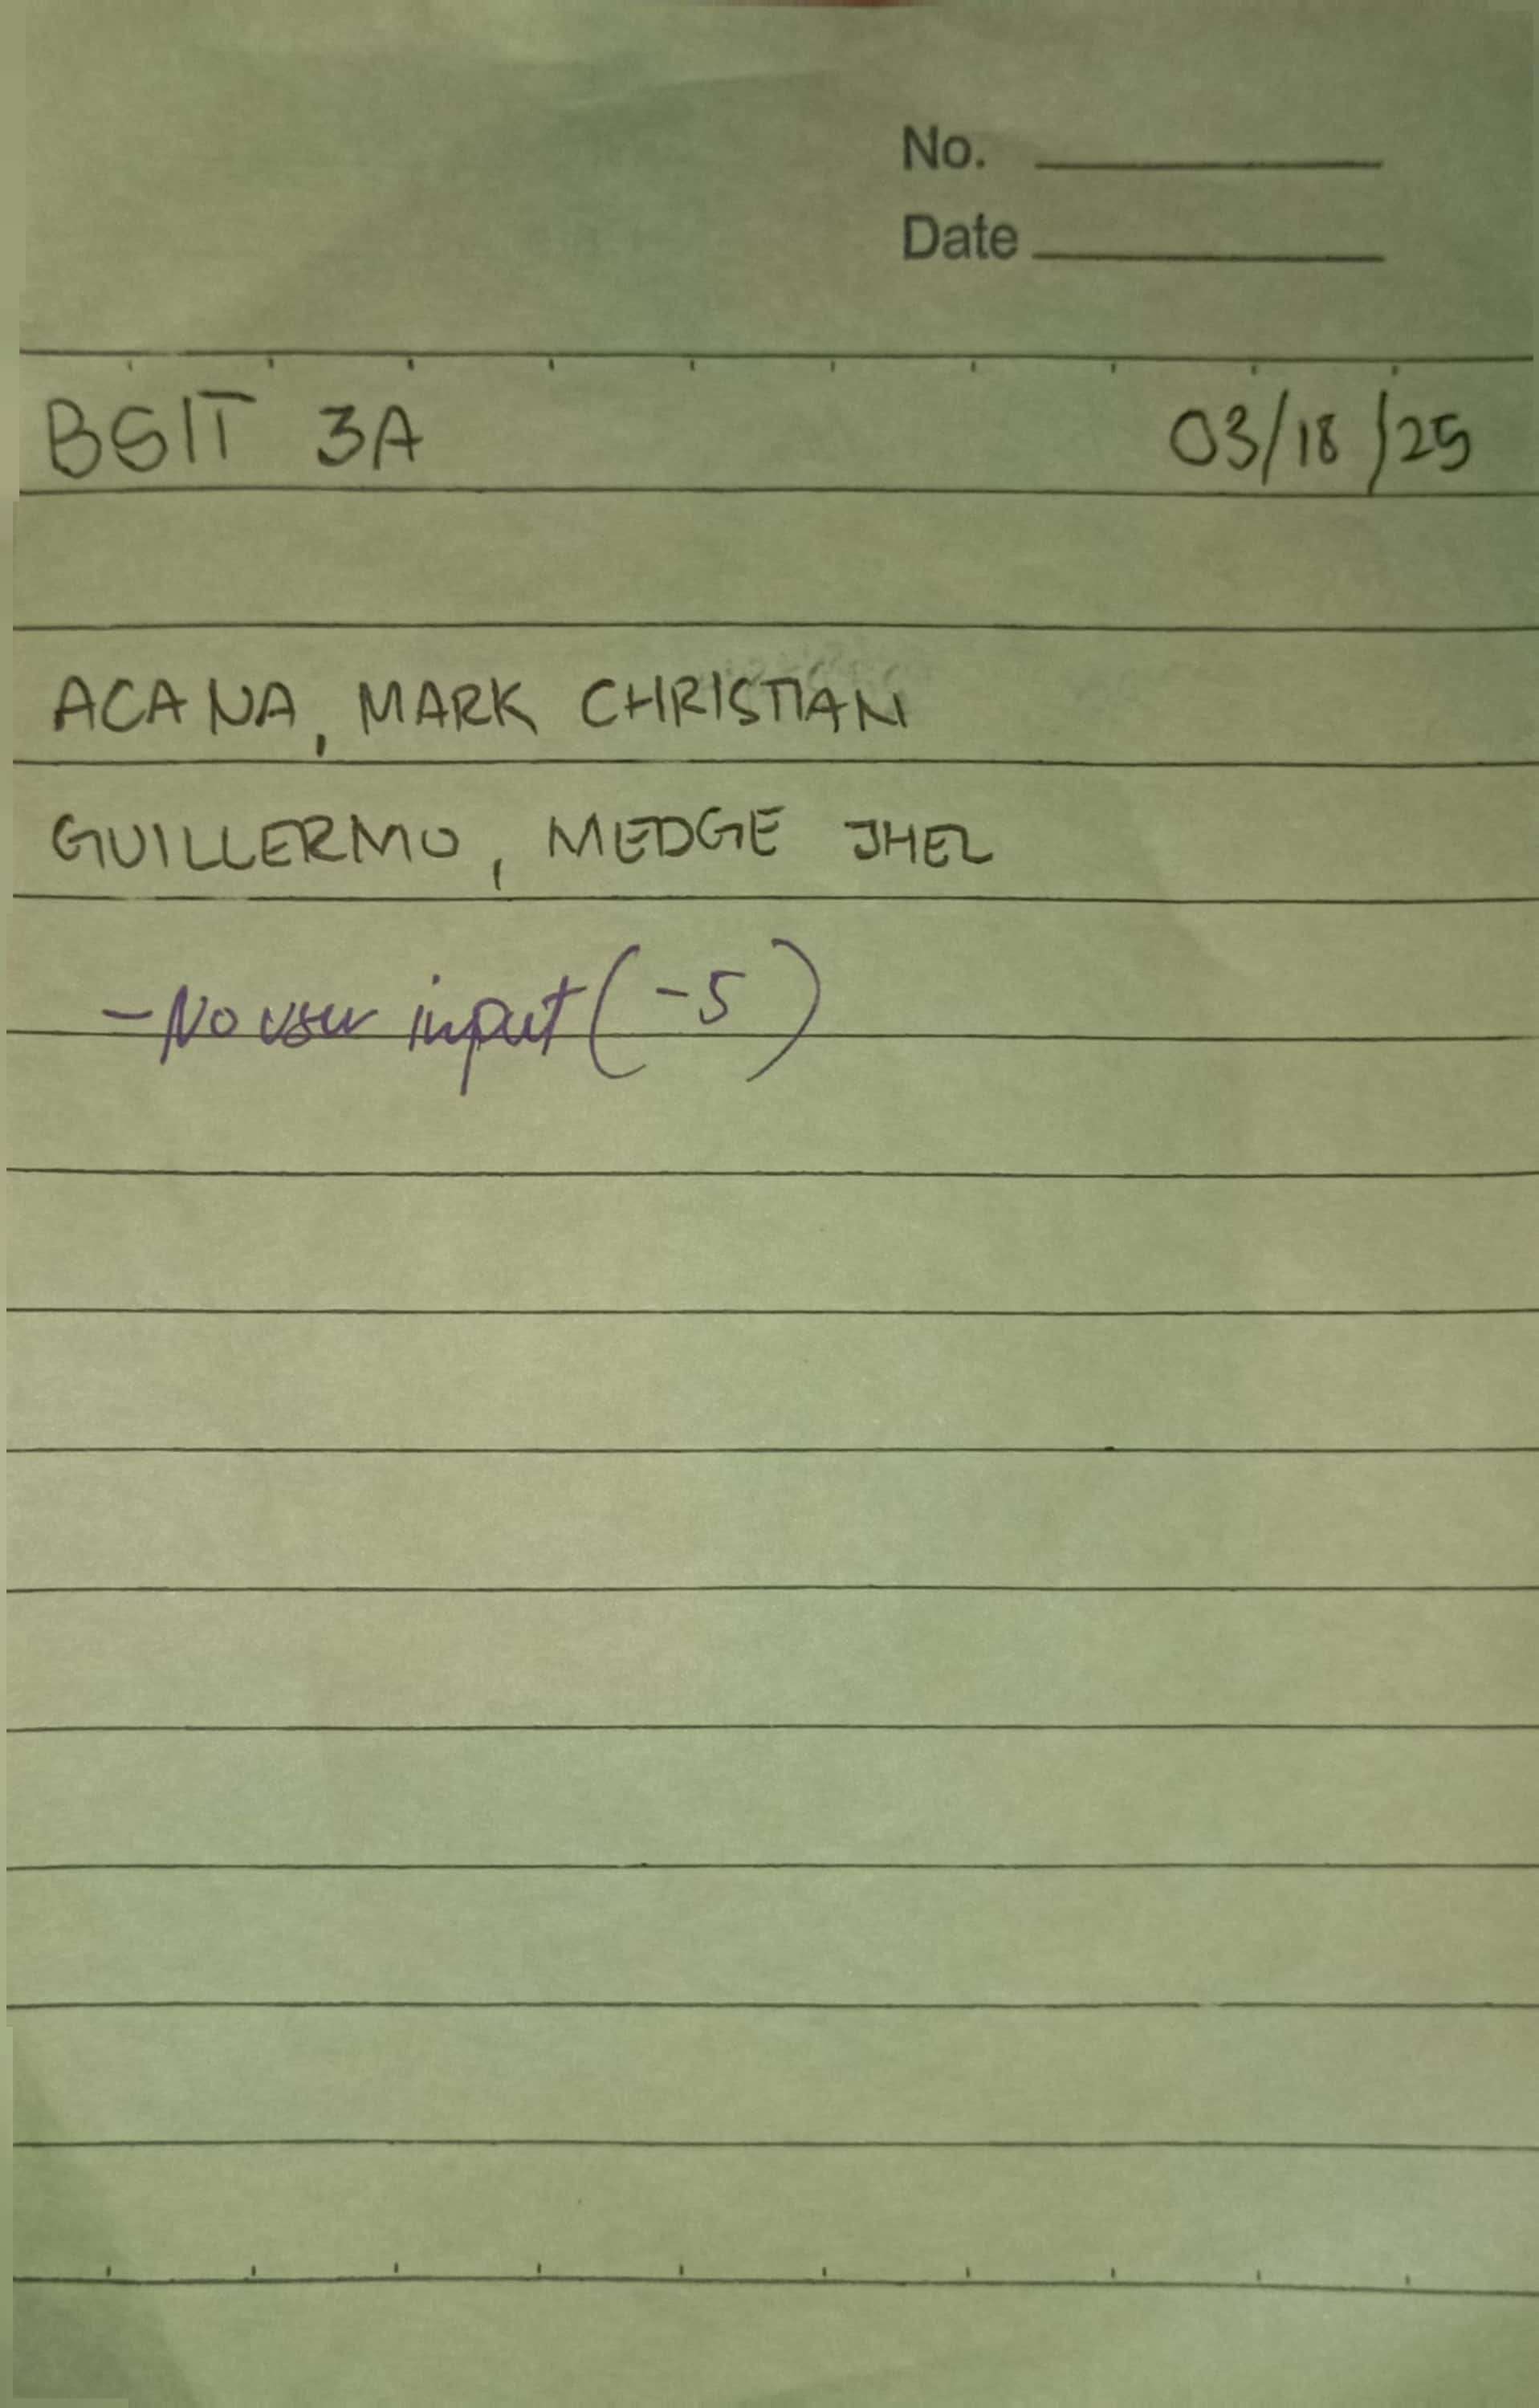 No.
Date
BSIT 3A 03/18/25
ACANA, MARK CHRISTIAN
GUILLERMO, MEDGE JHEL
- No user input (-5)